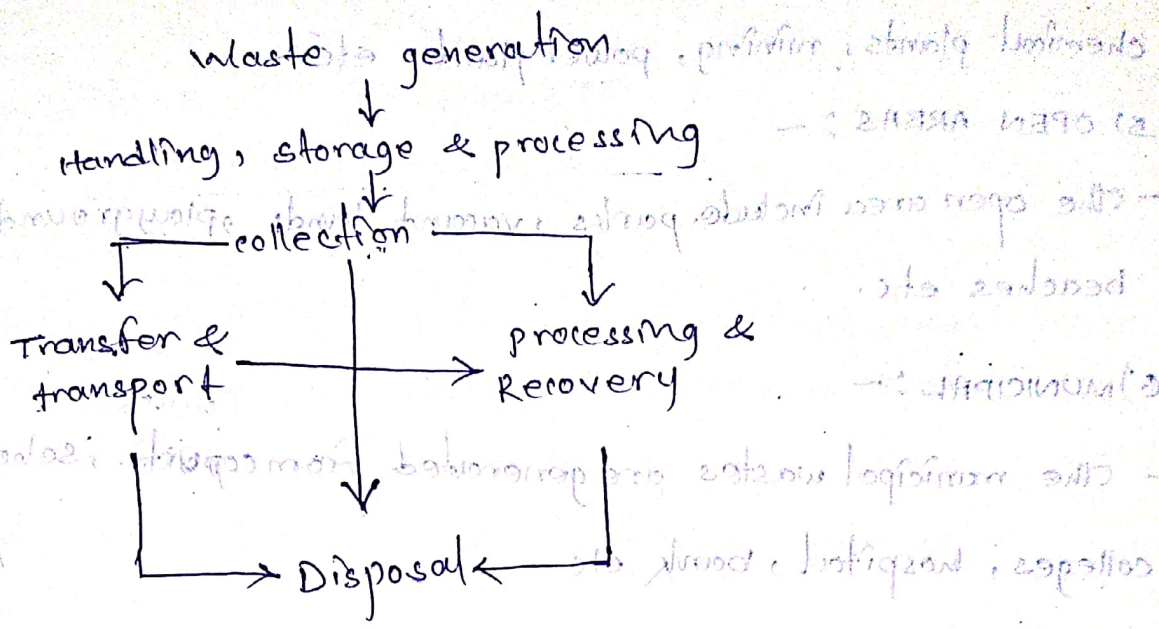 Waste generation
Handling, storage & processing
collection
Transfer &
transport
processing &
Recovery
Disposal